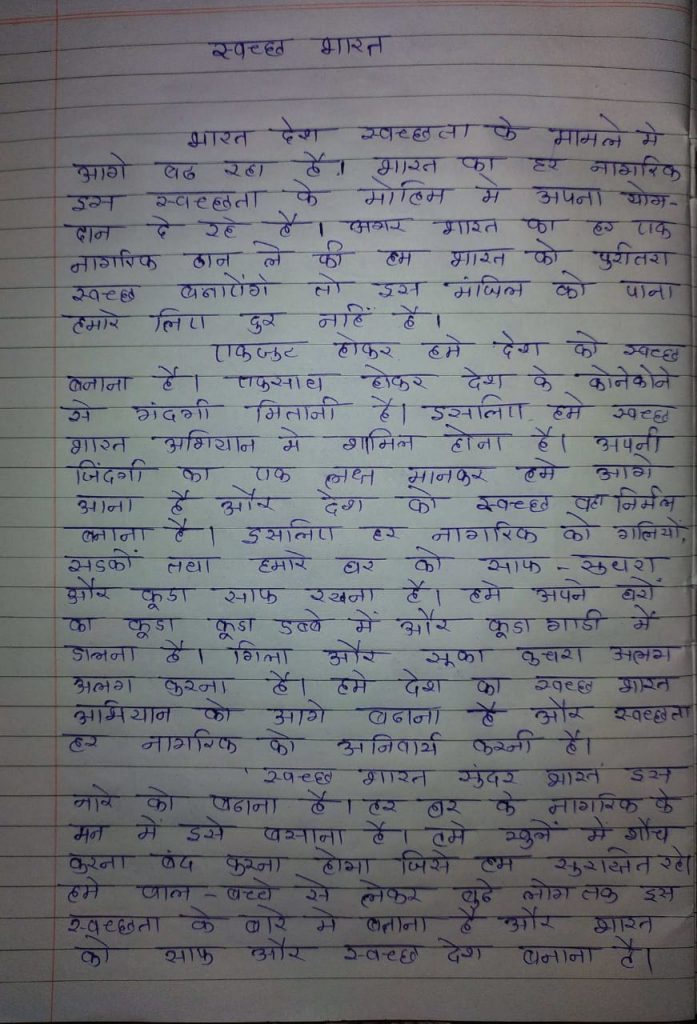 स्वच्छ भारत
भारत देश स्वच्छता के मामले मे
आगे बढ रहा है। भारत का हर नागरिक
इस स्वच्छता के मोहिम मे अपना योग-
दान दे रहे है। अगर भारत का हर एक
नागरिक ठान ले की हम भारत को पुरीतरा
स्वच्छ बनाएंगे तो इस मंजिल को पाना
हमारे लिए दुर नाहिं है।
एकजुट होकर हमे देश को स्वच्छ
बनाना है। एकसाथ होकर देश के कोनेकोने
से गंदगी मितानी है। इसलिए हमे स्वच्छ
भारत अभियान मे शामिल होना है। अपनी
जिंदगी का एक लक्ष मानकर हमे आगे
आना है और देश को स्वच्छ वहा निर्मल
बनाना है। इसलिए हर नागरिक को गलियों,
सडकों तथा हमारे घर को साफ - सुथरा
और कूडा साफ रखना है। हमे अपने घरों
का कूडा कूडा डब्बे में और कूडा गाडी में
डालना है। गिला और सूका कचरा अलग
अलग करना है। हमे देश का स्वच्छ भारत
अभियान को आगे बढाना है और स्वच्छता
हर नागरिक को अनिवार्य करनी है।
'स्वच्छ भारत सुंदर भारत' इस
नारे को बढाना है। हर घर के नागरिक के
मन में इसे बसाना है। हमे खुलें में शौच
करना बंद करना होगा जिसे हम सुरक्षित रहे।
हमे बाल - बच्चे से लेकर बुढे लोग तक इस
स्वच्छता के बारे मे बताना है और भारत
को साफ और स्वच्छ देश बनाना है।